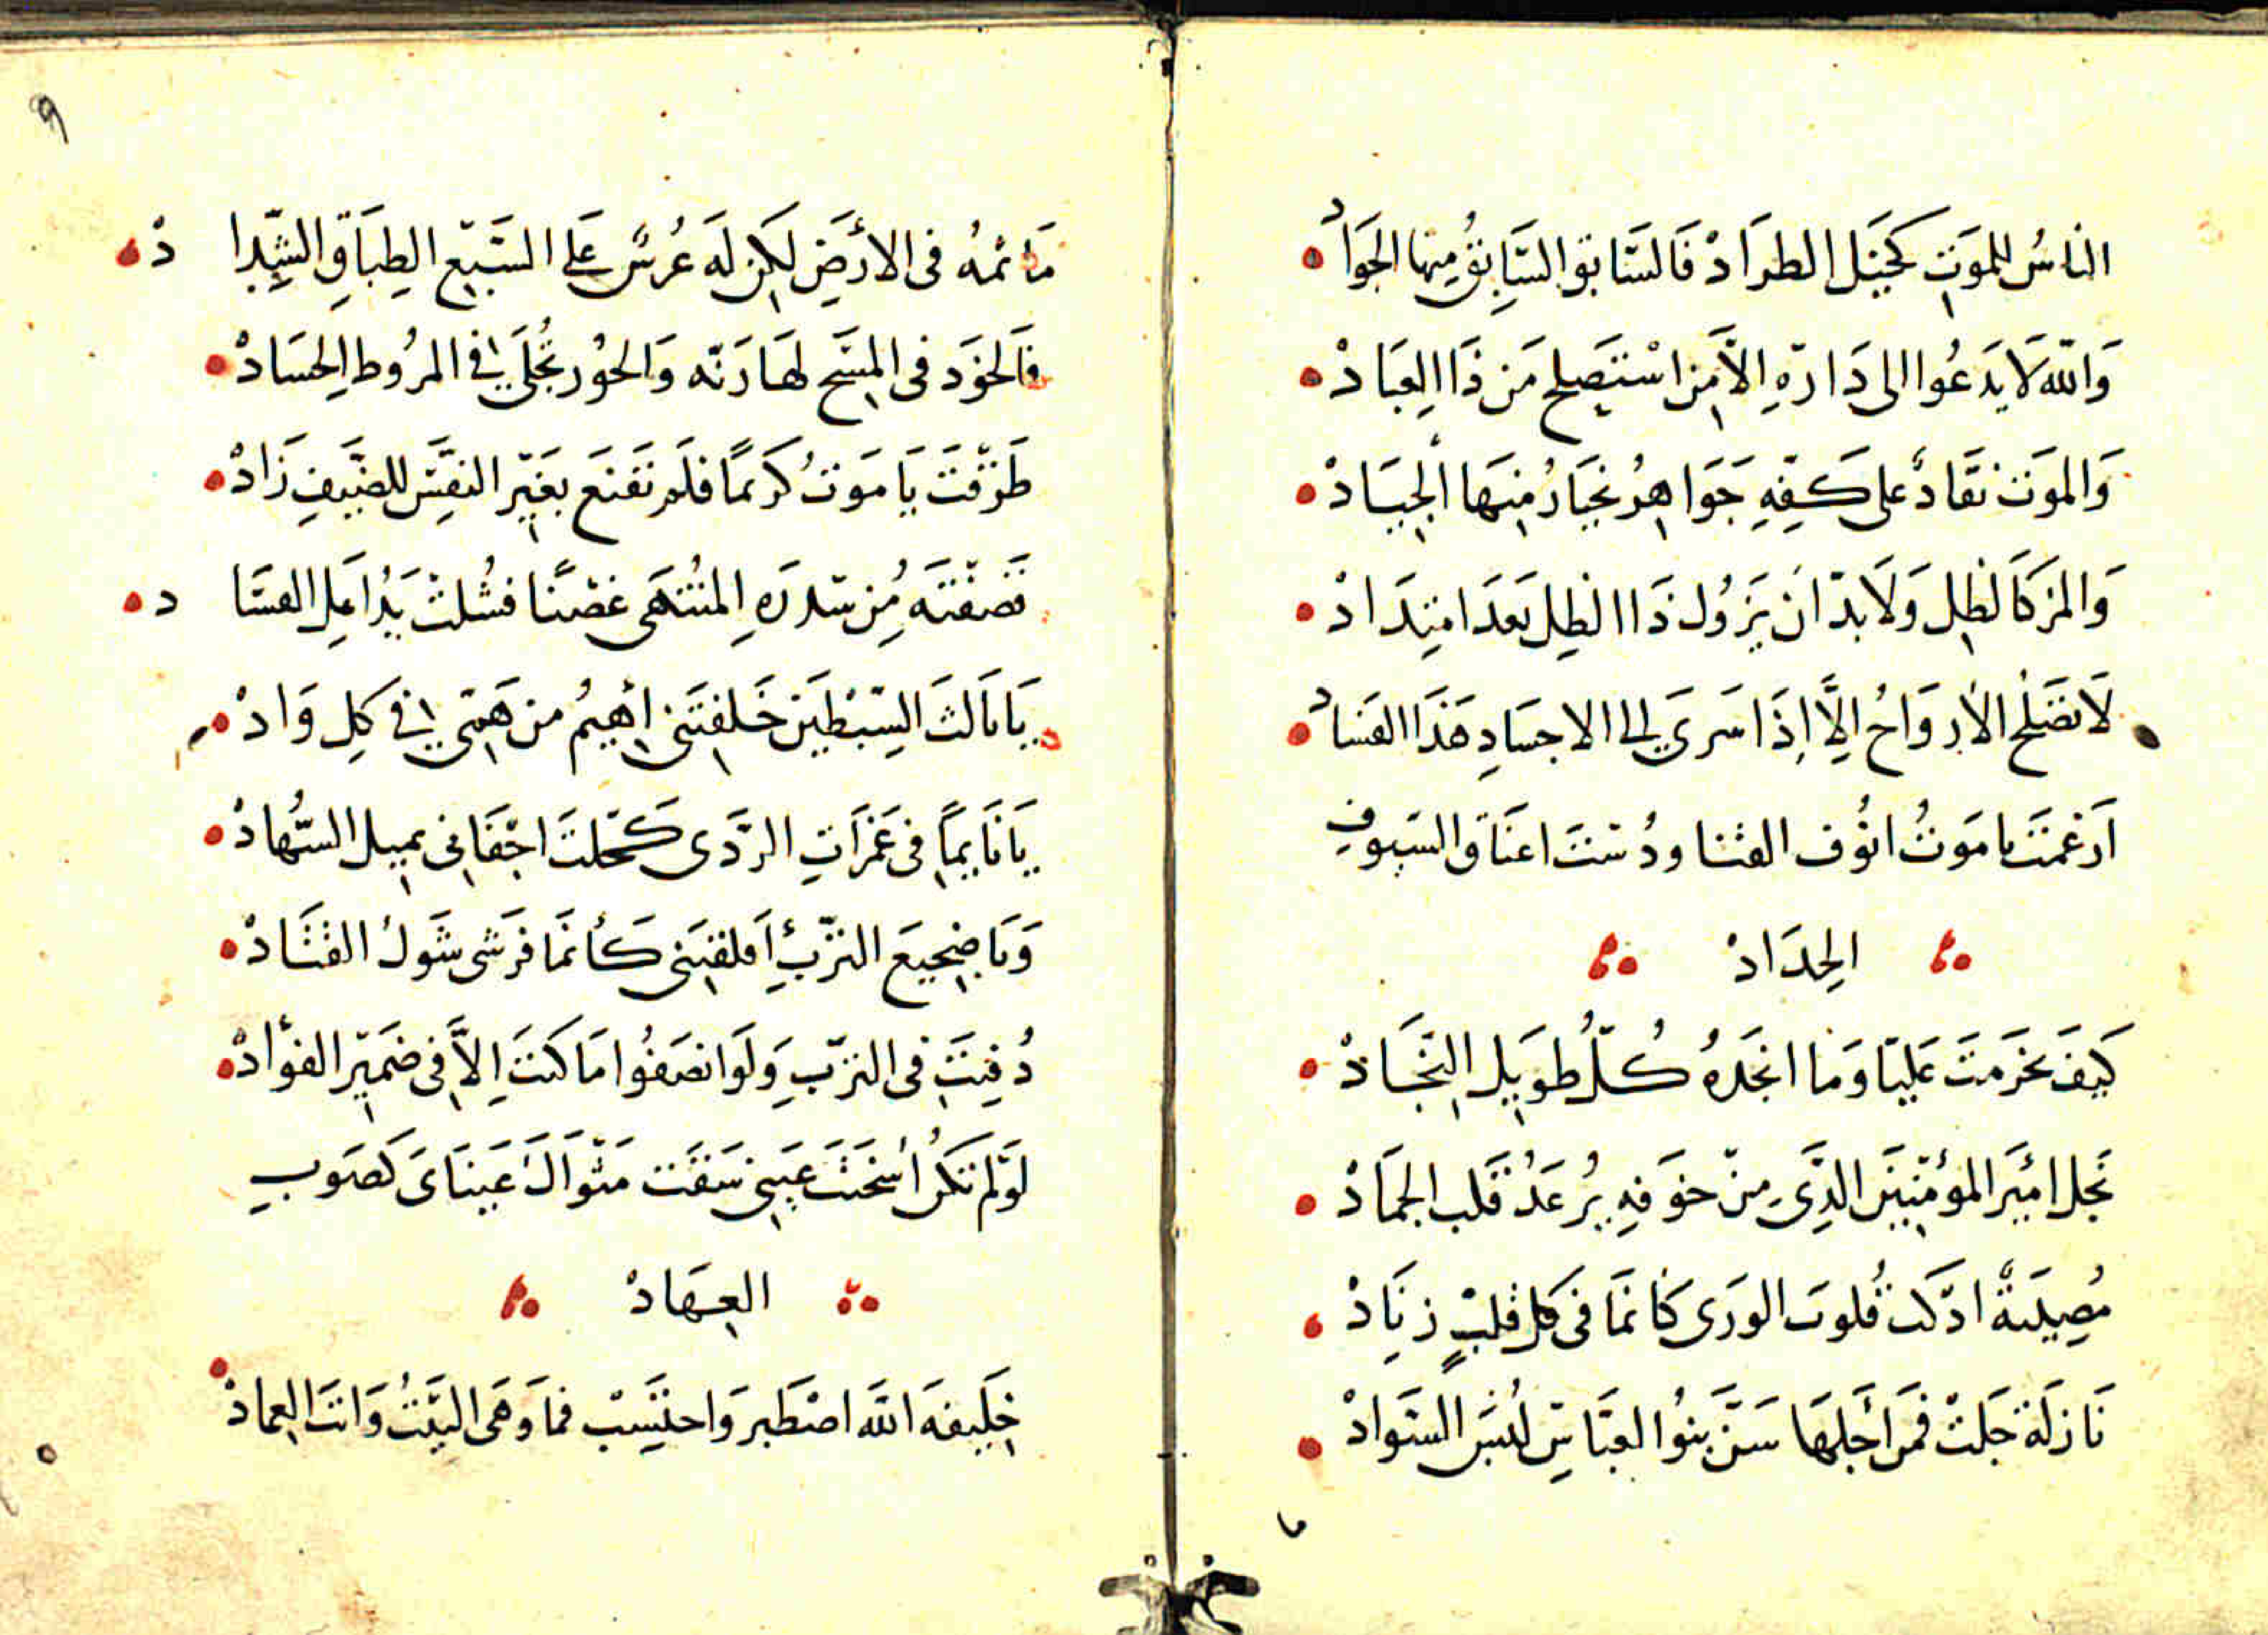 الناسُ للموَتِ كخَيَل الطرَادْ فَالسَّابق السَّابِقُ مِنها الجوَادْ
وَاللّه لَا يَدعُوا الى دَارِهِ الاَّ مِن اسْتَصلح مَن ذَا العِبَادْ
وَالموَت نقَّادٌ على كَفِّهِ جَوَاهرُ يختَارُ مِنهَا الجِيَادْ
وَالمرَ كَالظِل وَلَا بدّ ان يَزُول ذَا الظِل بَعدَ امتِدَادْ
لَا تصَلُح الأروَاحُ الِاَّ إذَا سَرَى الى الاجسَادِ هَذَا الفسَادْ
ارَغمتَ يا مَوتُ انوُف القنا ودُستَ اعنَاق السَيوفِ
الحِدَادْ
كيَفَ تخَرمتَ عَليّا وَما انجَدهُ كُلّ طوِيل النِجَادْ
نجَل امَير المؤمِنينَ الذِى مِن خوَفهِ يُرعَدُ قَلب الجمَادْ
مُصِيبَةٌ اذكَت قُلوبَ الورَى كأنمَا فى كل قلبٍ زنَادْ
نَازلَة جَلتْ فمَن أجَلهَا سَنَّ بنوُا العبَّاسِ لُبسَ السَّوادْ
مَأتمهُ فى الأرَضِ لكِن لَه عُرسٌ عَلى السَّبعِ الطِبَاقِ الشِدادْ
فالخوَد فى المِسَح لهَا رَنّه وَالحوُر تجُلَى فى المرُوط الِحسَادْ
طَرَقتَ يَا مَوتُ كرَيمًا فلَم تقَنَع بغَيرِ النفَسِ للضَيفِ زَادْ
قصَفتَه مِن سّدرَهِ المنُتَهى غصْنًا فشُلتْ يَدُ اهَلِ الفسَادْ
يَا ثالَثَ السِّبَطيَن خَلفتَنى اهِيمُ من هَمّى فى كلِ وَادْ
يَا نَايمًا فى غَمَرَاتِ الردَّى كَحّلتَ اجفَانى بميِل السُّهادْ
وَيا ضجِيعَ الترُّبِ أقلقتَنى كَأنمَا فرَشى شَوكُ القتَادْ
دُفِنتَ فى الترُّبِ وَلوَ انصَفوُا مَا كنتَ الِاَّ فى ضمَير الفؤُادْ
لوَلم تَكُن أسُخنَتَ عيَنِى سَقَت مَثوَاكَ عَينَاىَ كَصَوبِ
العِهَادْ
خلِيفهَ اللَّه اصْطَبر وَاحتَسِبْ فمَا وَهَى البَيتُ وَانتَ العِمادْ